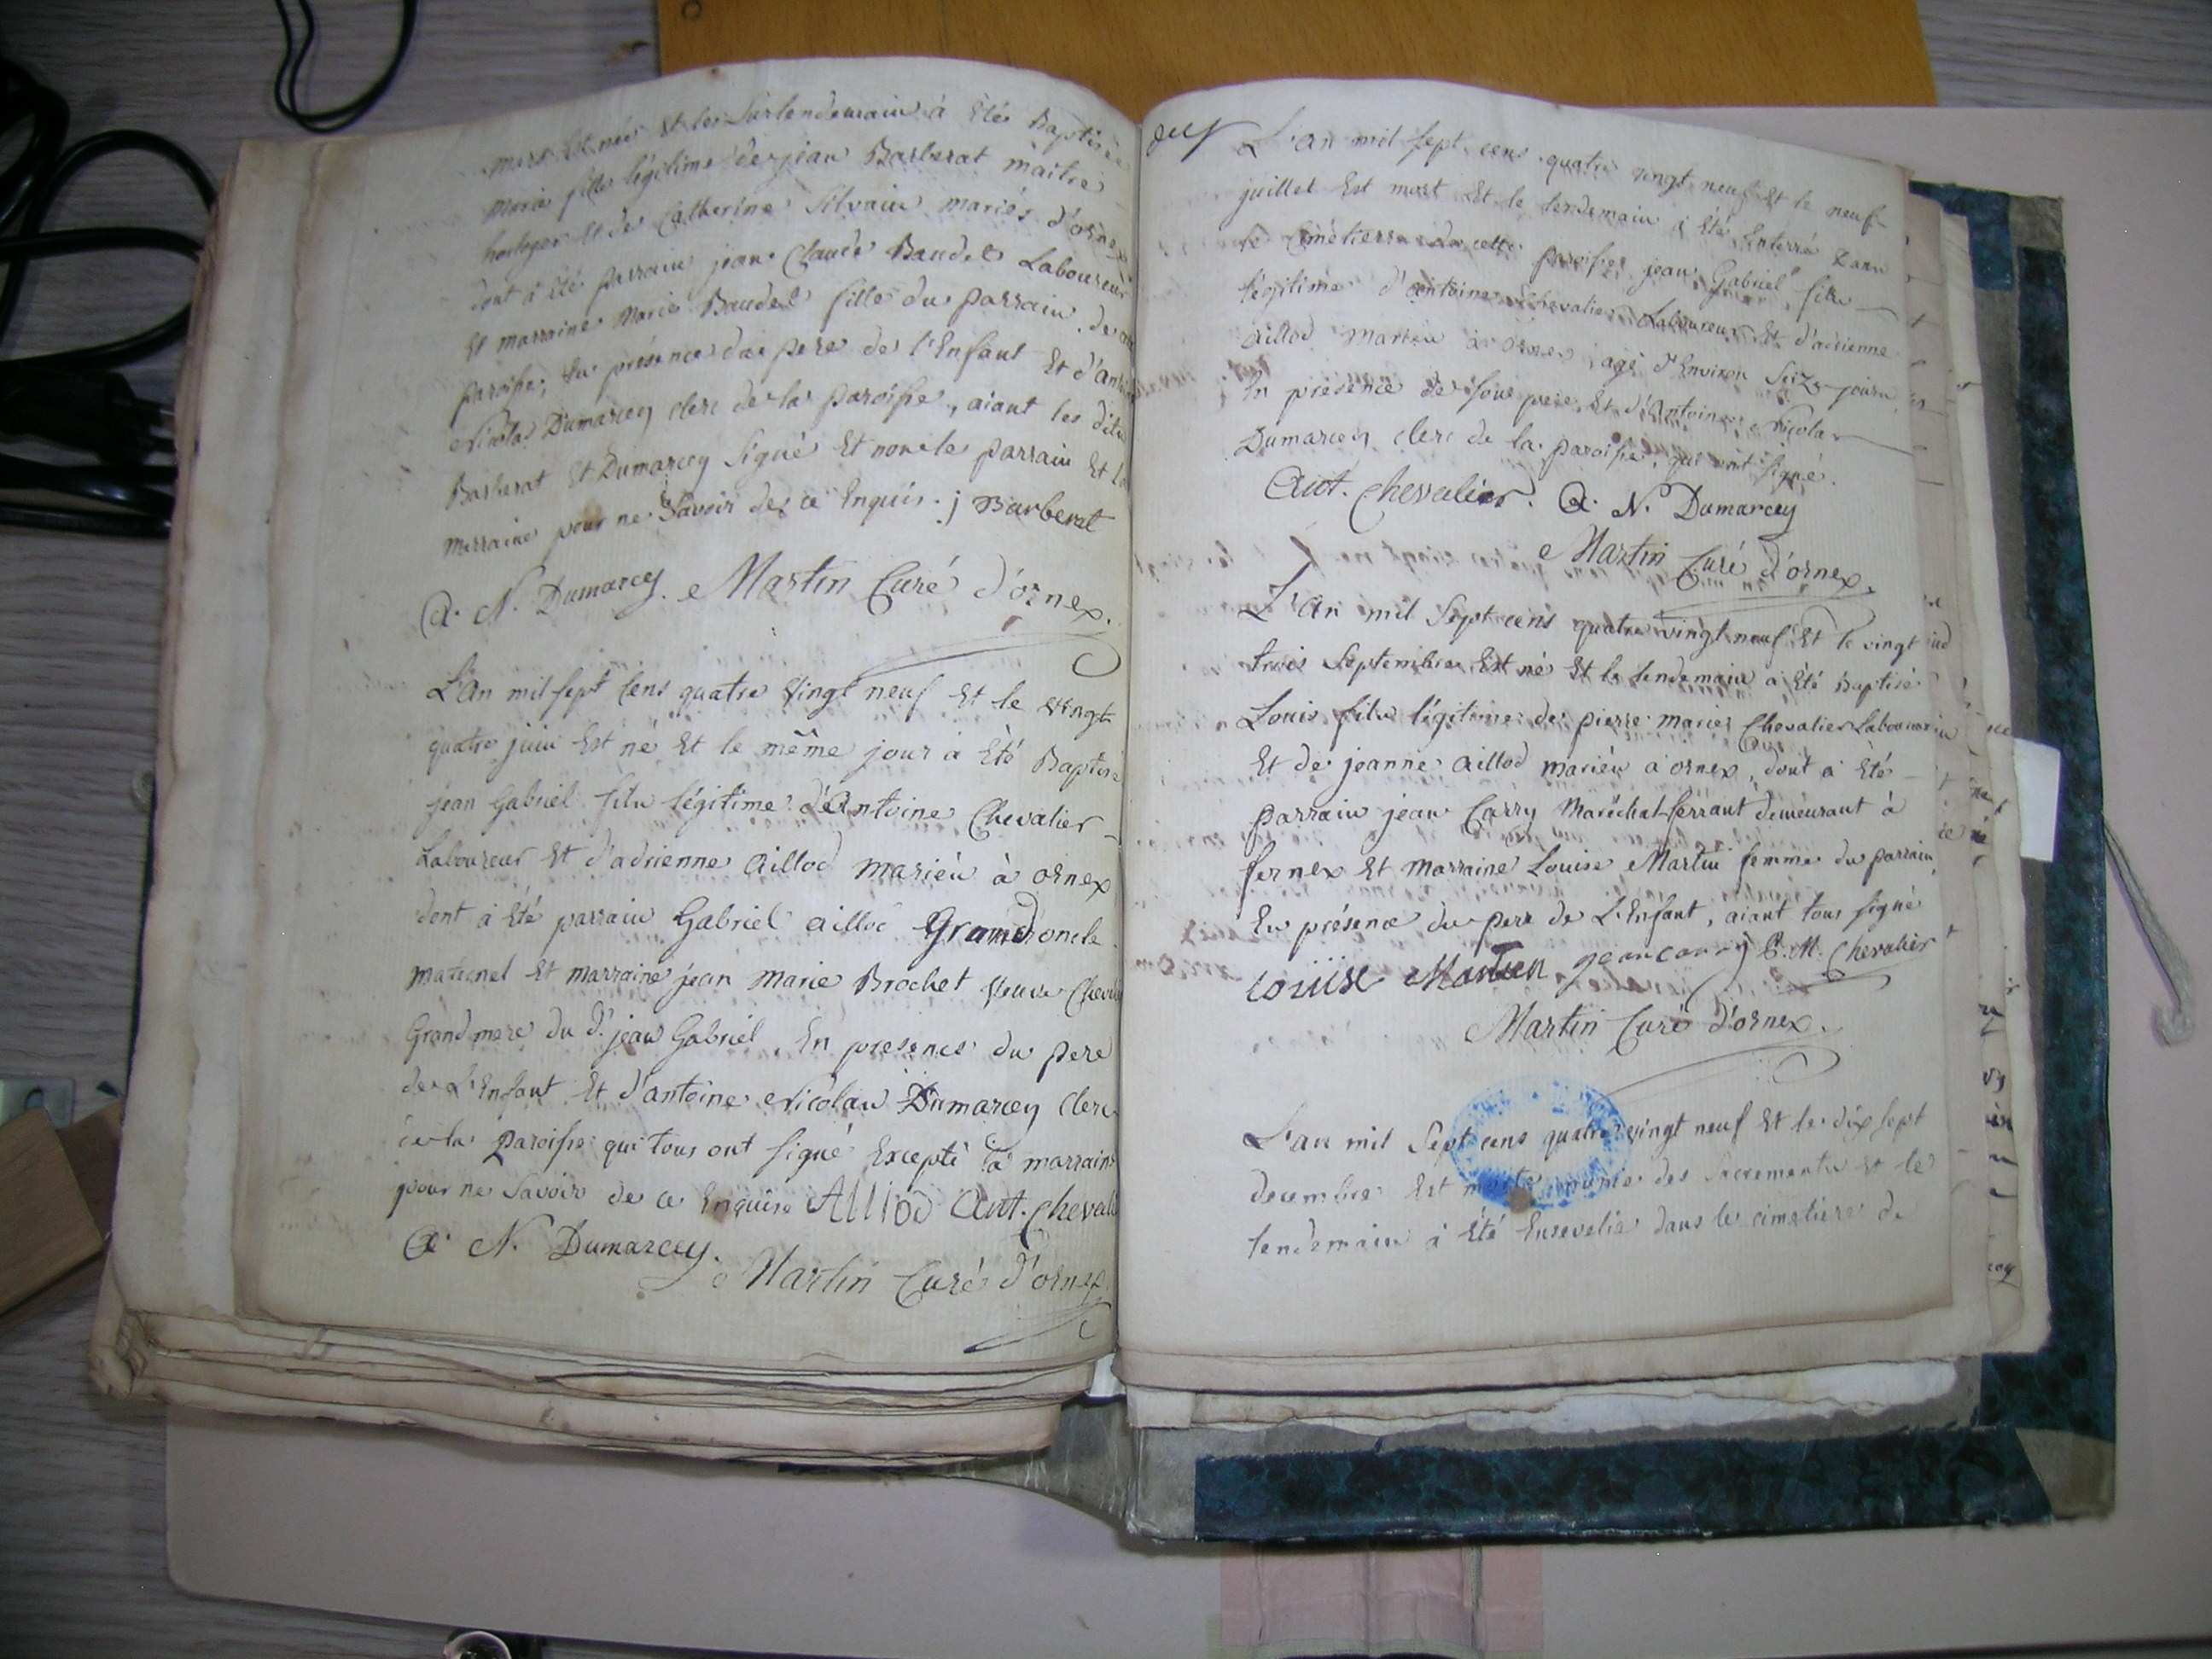 mars Est née Et le Surlendemain à Eté Baptisée
Marie fille légitime de jean Barberat maitre
horloger Et de Catherine Silvain mariés d'ornex
dont à Eté parrain jean Claude Baudet Laboureur
Et marraine Marie Baudet fille du parrain, de
paroisse; En présence du pere de l'Enfant Et d'antoine
Nicolas Dumarcey clerc de la paroisse, aiant les dits
Barberat Et Dumarcey Signé Et non le parrain Et la
marraine pour ne Savoir de ce Enquis. j Barberat
A. N. Dumarcey. Martin Curé d'ornex.
L'An mil sept Cens quatre Vingt neuf Et le vingt
quatre juin Est né Et le même jour à Eté Baptisé
jean Gabriel fils légitime d'Antoine Chevalier
Laboureur Et d'adrienne Aillod mariés à ornex
dont à Eté parrain Gabriel aillod Grand oncle
maternel Et marraine jean Marie Brochet Veuve
Grand mere du d. jean Gabriel, En presence du pere
de L'Enfant Et d'antoine Nicolas Dumarcey Clerc
de la Paroisse qui tous ont signé Excepté la marraine
pour ne Savoir de ce Enquise Alliod Ant. Cheval
A. N. Dumarcey.
Martin Curé d'ornex.
L'an mil sept cens quatre vingt neuf Et le neuf
juillet Est mort Et le lendemain à Eté Enterré Dans
le Cimetierre de cette paroisse jean Gabriel fils
légitime d'antoine Chevalier Laboureur Et d'adrienne
Aillod Mariés à ornex, agé d'Environ Seize jours
En présence de sous pere, Et d'Antoine Nicolas
Dumarcey clerc de la paroisse, qui ont signé.
Ant. Chevalier. A. N. Dumarcey
Martin Curé d'ornex.
L'An mil Sept cens quatre vingt neuf Et le vingt
trois Septembre Est né Et le lendemain à Eté Baptisé
Louis fils légitime de pierre marie Chevalier Laboureur
Et de jeanne Aillod mariés à ornex, dont à Eté
parrain jean Carry Maréchal ferrant demeurant à
fernex Et marraine Louise Martin femme du parrain,
En présence du pere de L'Enfant, aiant tous signé
Louise Martin jean carry P. M. Chevalier
Martin Curé d'ornex.
L'an mil Sept cens quatre vingt neuf Et le dix sept
decembre Est morte munie des Sacrements Et le
lendemain à Eté Ensevelie dans le cimetiere de